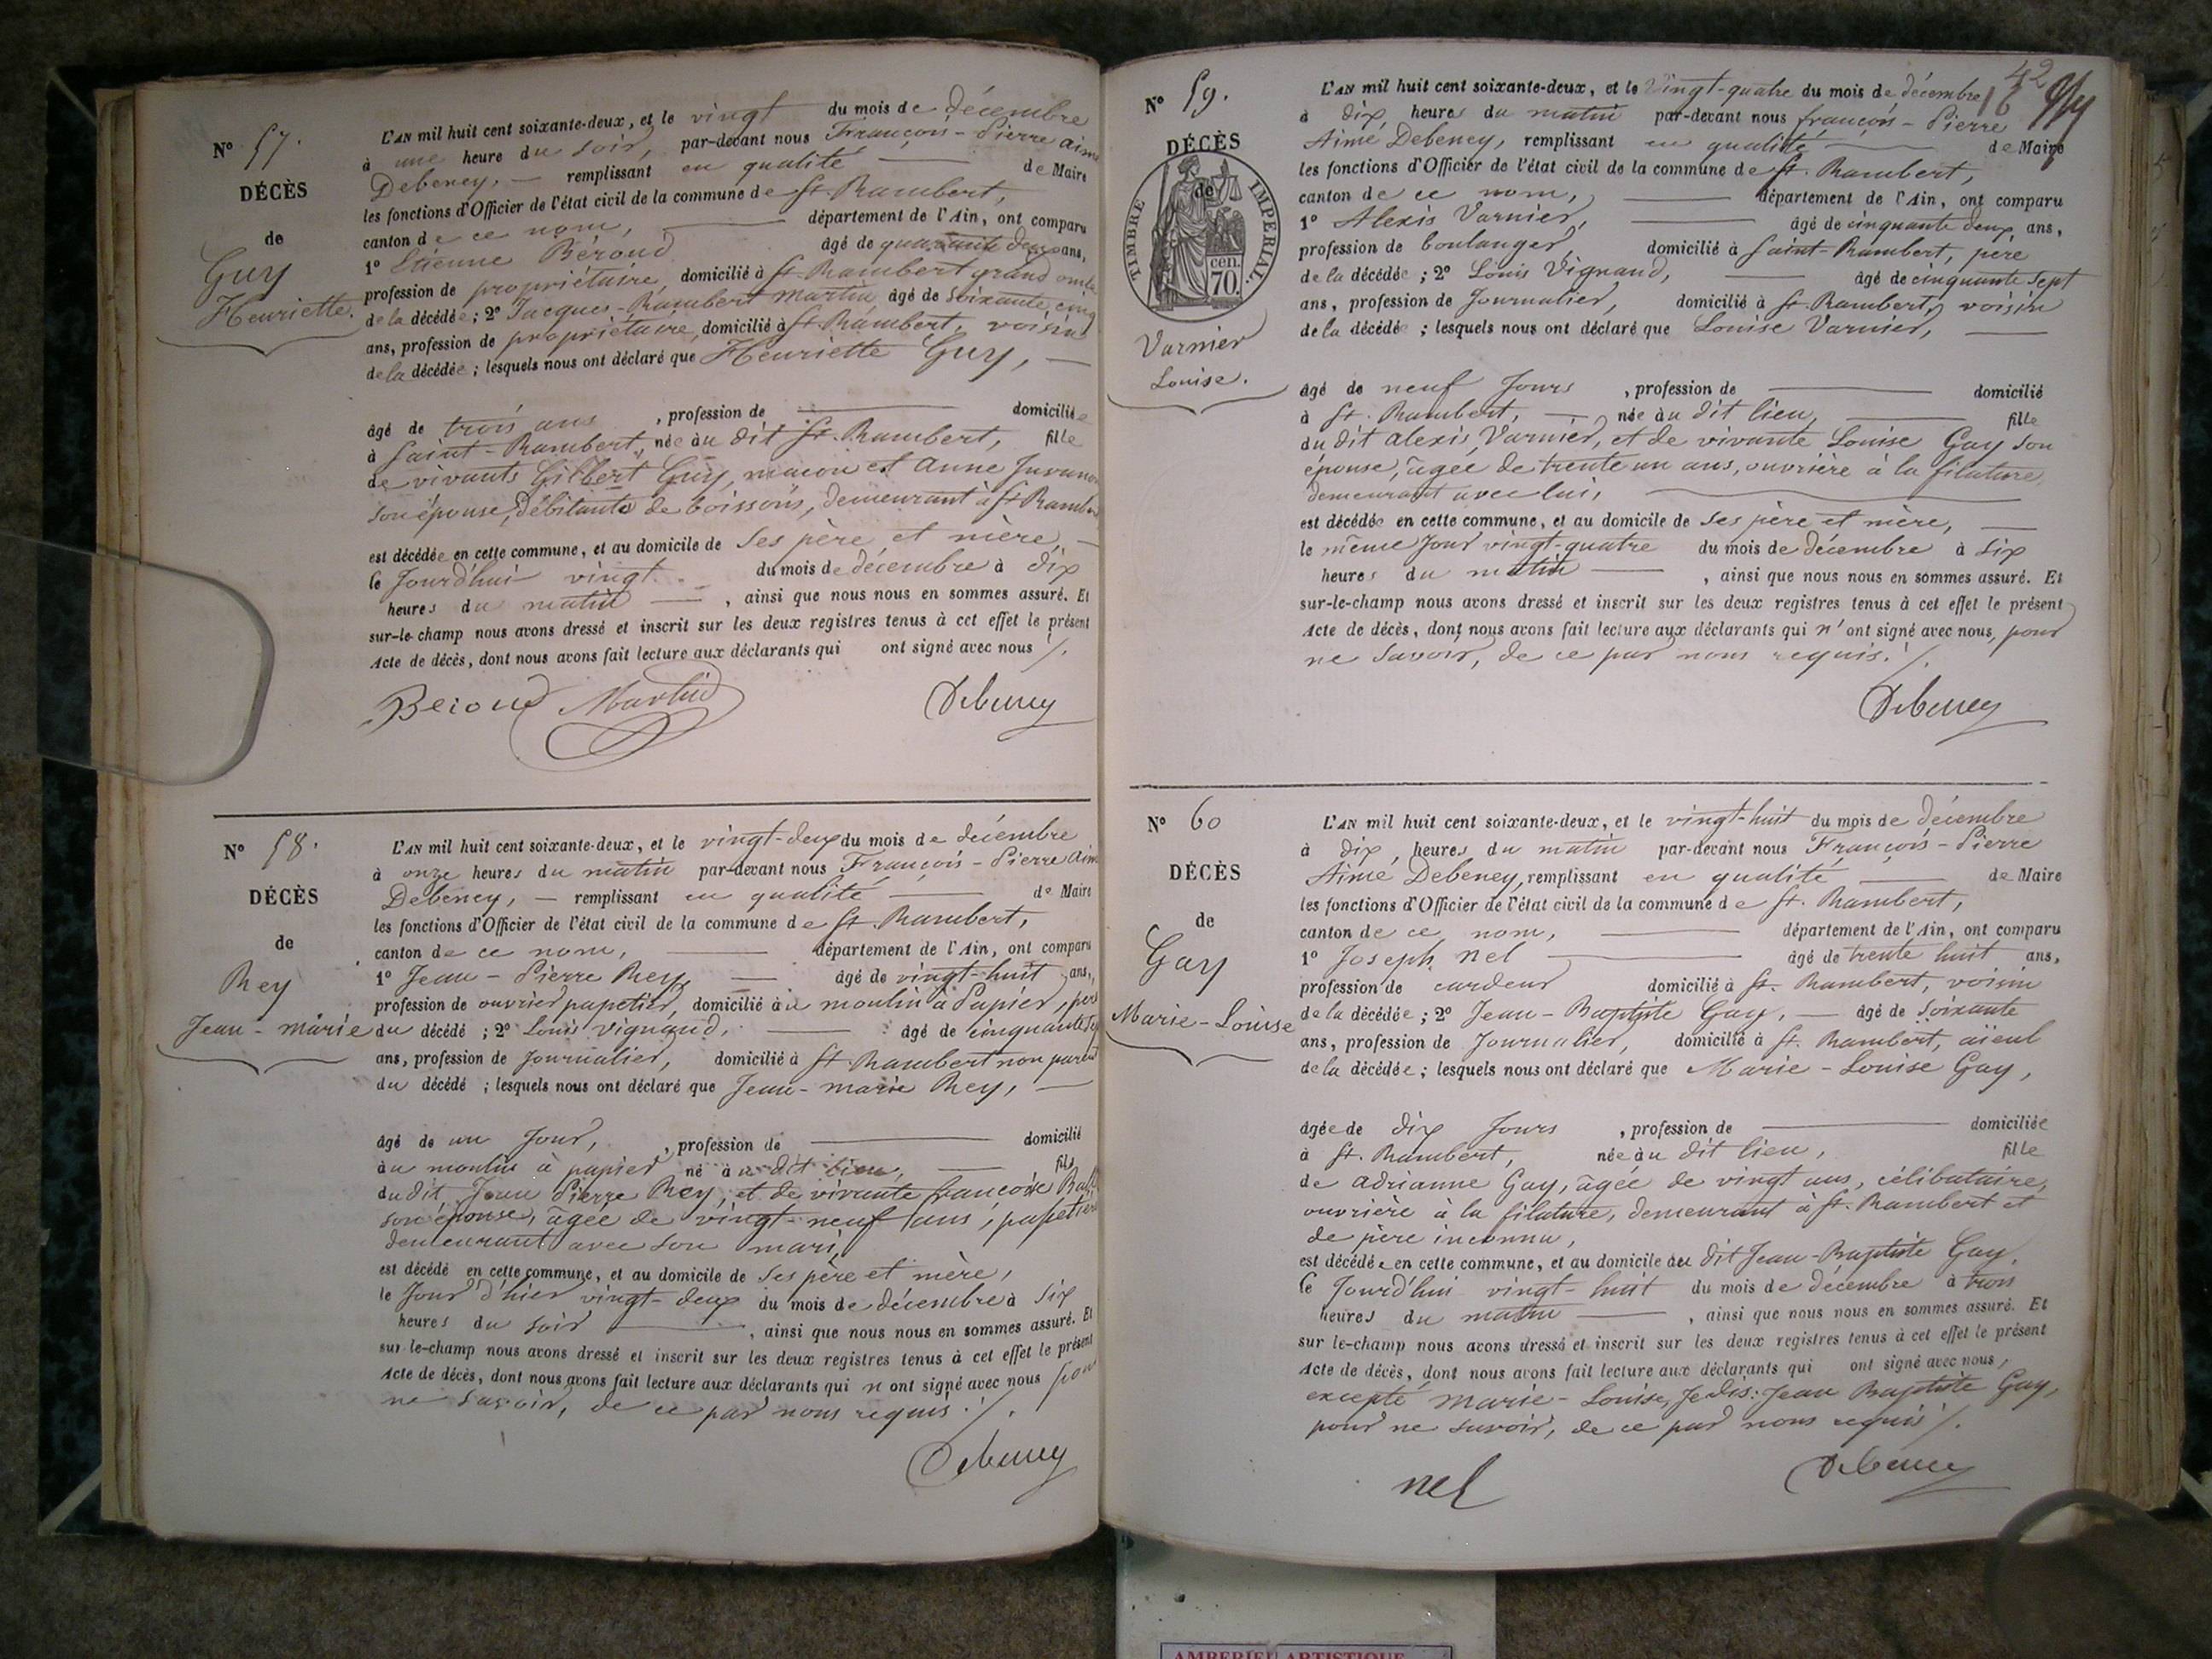 N° 57.
DÉCÈS
de
Guy
Henriette.
L'AN mil huit cent soixante-deux, et le vingt du mois de décembre
à une heure du soir, par-devant nous François-Pierre aimé
Debeney, — remplissant en qualité — de Maire
les fonctions d'Officier de l'état civil de la commune de St. Rambert,
canton de ce nom, — département de l'Ain, ont comparu
1° Etienne Béroud âgé de quarante deux ans,
profession de propriétaire, domicilié à St. Rambert grand oncle
de la décédée; 2° Jacques-Rambert Martin, âgé de soixante cinq
ans, profession de propriétaire, domicilié à St. Rambert, voisin
de la décédée; lesquels nous ont déclaré que Henriette Guy, —
âgé de trois ans, profession de — domiciliée
à Saint-Rambert, née àu dit St. Rambert, fille
de vivants Gilbert Guy, maçon et Anne
son épouse, débitante de boissons, demeurant à St Rambert
est décédée en cette commune, et au domicile de ses père et mère, —
le Jourd'hui vingt du mois de décembre à dix
heures du matin —, ainsi que nous nous en sommes assuré. Et
sur-le-champ nous avons dressé et inscrit sur les deux registres tenus à cet effet le présent
Acte de décès, dont nous avons fait lecture aux déclarants qui ont signé avec nous ./.
Beroud Martin Debeney
N° 58.
DÉCÈS
de
Rey
Jean-marie
L'AN mil huit cent soixante-deux, et le vingt-deux du mois de décembre
à onze heures du matin par-devant nous François-Pierre aimé
Debeney, — remplissant en qualité — de Maire
les fonctions d'Officier de l'état civil de la commune de St. Rambert,
canton de ce nom, — département de l'Ain, ont comparu
1° Jean-Pierre Rey, — âgé de vingt-huit ans,
profession de ouvrier papetier, domicilié àu moulin à Papier, père
du décédé; 2° Louis Vignand, — âgé de cinquante sept
ans, profession de Journalier, domicilié à St. Rambert non parent
du décédé; lesquels nous ont déclaré que Jean-marie Rey, —
âgé de un Jour, profession de — domicilié
àu moulin à papier né àu dit lieu, — fils
du dit Jean Pierre Rey, et de vivante françoise
son épouse, âgée de vingt-neuf ans, papetière
demeurant avec son mari,
est décédé en cette commune, et au domicile de ses père et mère,
le Jour d'hier vingt-deux du mois de décembre à six
heures du soir —, ainsi que nous nous en sommes assuré. Et
sur-le-champ nous avons dressé et inscrit sur les deux registres tenus à cet effet le présent
Acte de décès, dont nous avons fait lecture aux déclarants qui n'ont signé avec nous pour
ne savoir, de ce par nous requis ./.
Debeney
42
16
N° 59.
DÉCÈS
de
TIMBRE IMPÉRIAL.
cen.
70.
Varnier
Louise.
L'AN mil huit cent soixante-deux, et le vingt-quatre du mois de décembre
à dix, heures du matin par-devant nous françois-Pierre
Aimé Debeney, remplissant en qualité — de Maire
les fonctions d'Officier de l'état civil de la commune de St. Rambert,
canton de ce nom, — département de l'Ain, ont comparu
1° Alexis Varnier, — âgé de cinquante deux ans,
profession de boulanger, domicilié à Saint-Rambert, père
de la décédée; 2° Louis Vignand, — âgé de cinquante sept
ans, profession de Journalier, domicilié à St. Rambert, voisin
de la décédée; lesquels nous ont déclaré que Louise Varnier, —
âgé de neuf Jours, profession de — domicilié
à St. Rambert, — née àu dit lieu, — fille
du dit alexis Varnier, et de vivante Louise Gay son
épouse, âgée de trente un ans, ouvrière à la filature,
demeurant avec lui, —
est décédée en cette commune, et au domicile de ses père et mère, —
le même Jour vingt-quatre du mois de décembre à six
heures du matin —, ainsi que nous nous en sommes assuré. Et
sur-le-champ nous avons dressé et inscrit sur les deux registres tenus à cet effet le présent
Acte de décès, dont nous avons fait lecture aux déclarants qui n'ont signé avec nous, pour
ne savoir, de ce par nous requis. ./.
Debeney
N° 60
DÉCÈS
de
Gay
Marie-Louise
L'AN mil huit cent soixante-deux, et le vingt-huit du mois de décembre
à dix, heures du matin par-devant nous François-Pierre
Aimé Debeney, remplissant en qualité — de Maire
les fonctions d'Officier de l'état civil de la commune de St. Rambert,
canton de ce nom, — département de l'Ain, ont comparu
1° Joseph Nel — âgé de trente huit ans,
profession de cardeur domicilié à St. Rambert, voisin
de la décédée; 2° Jean-Baptiste Gay, — âgé de soixante
ans, profession de Journalier, domicilié à St. Rambert, aïeul
de la décédée; lesquels nous ont déclaré que Marie-Louise Gay,
âgée de dix Jours, profession de — domiciliée
à St. Rambert, née àu dit lieu, fille
de adrianne Gay, âgée de vingt ans, célibataire,
ouvrière à la filature, demeurant à St. Rambert et
de père inconnu,
est décédée en cette commune, et au domicile du dit Jean-Baptiste Gay,
le Jourd'hui vingt-huit du mois de décembre à trois
heures du matin —, ainsi que nous nous en sommes assuré. Et
sur le-champ nous avons dressé et inscrit sur les deux registres tenus à cet effet le présent
Acte de décès, dont nous avons fait lecture aux déclarants qui ont signé avec nous,
excepté marie-Louise, Je dis: Jean Baptiste Gay,
pour ne savoir, de ce par nous requis ./.
nel Debeney
AMBERIEU ARTISTIQUE